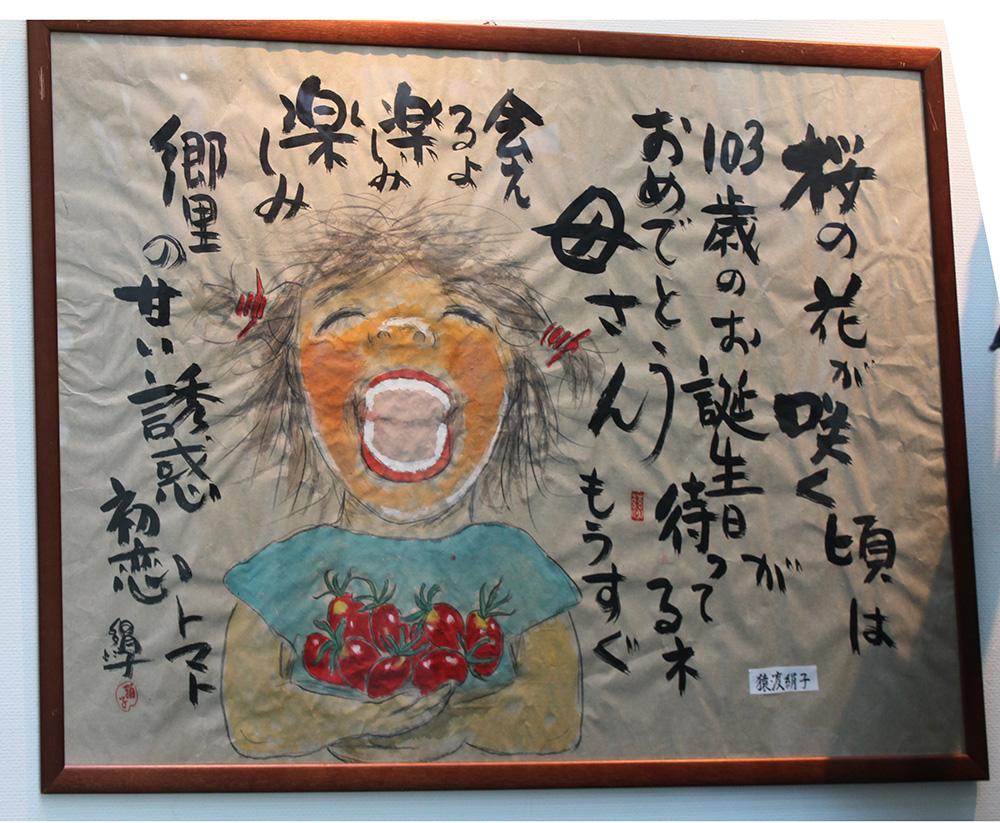 桜の花が咲く頃は
103歳のお誕生日が
待ってるネ
おめでとう
母さん
もうすぐ
会え
るよ
楽しみ
楽しみ
郷里の甘い誘惑
、トマト
初恋
絹子
猿渡絹子